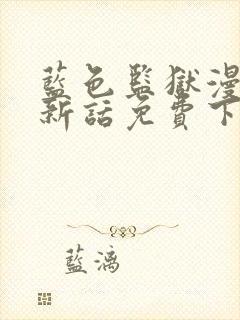 藍色監獄漫
新話免費下
藍漓